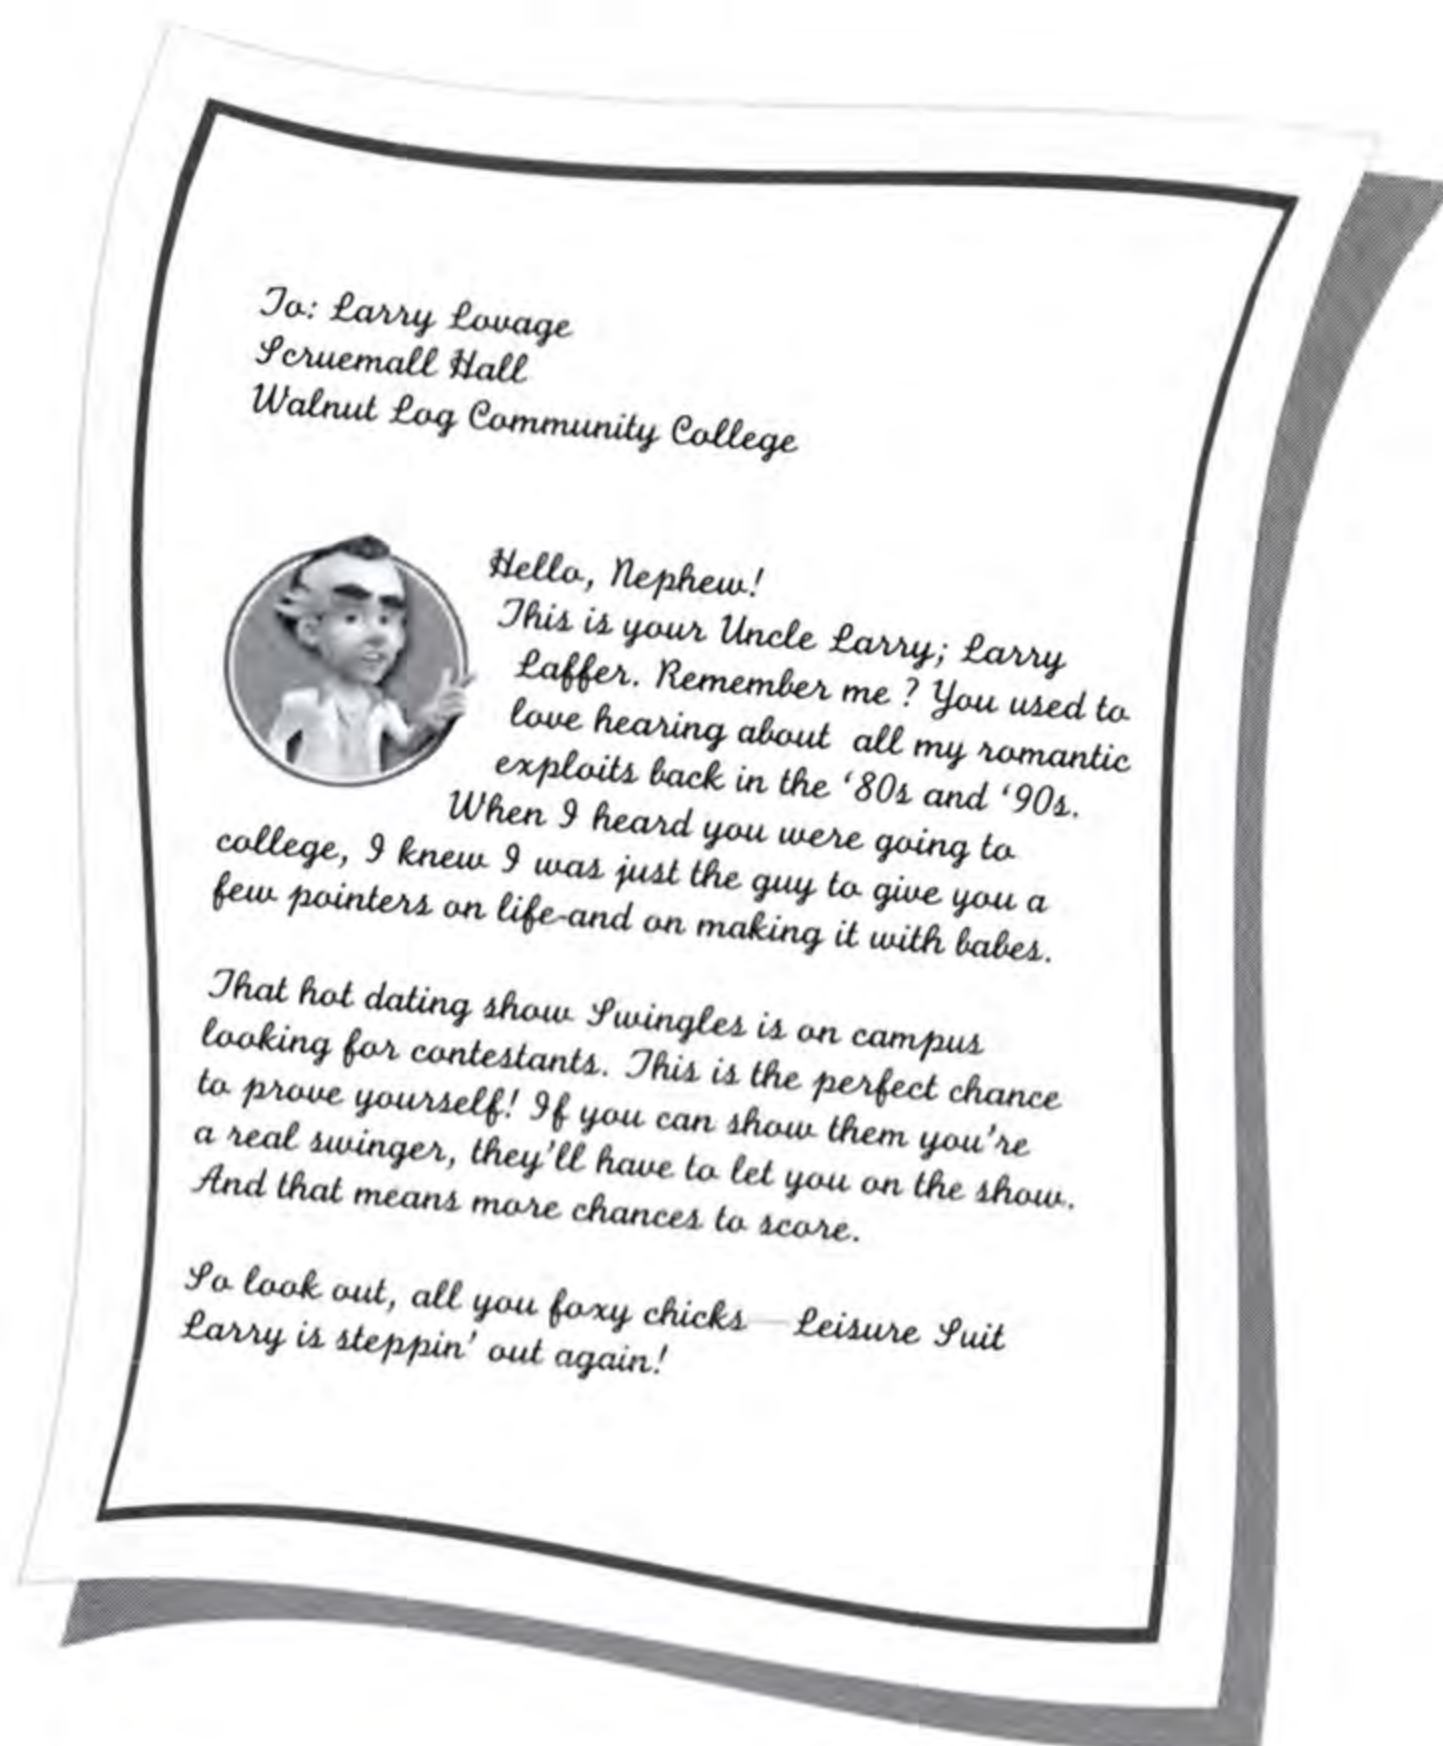 To: Larry Lovage
Scruemall Hall
Walnut Log Community College
Hello, Nephew!
This is your Uncle Larry; Larry
Laffer. Remember me ? You used to
love hearing about all my romantic
exploits back in the ‘80s and ‘90s.
When I heard you were going to
college, I knew I was just the guy to give you a
few pointers on life-and on making it with babes.
That hot dating show Swingles is on campus
looking for contestants. This is the perfect chance
to prove yourself! If you can show them you're
a real swinger, they'll have to let you on the show.
And that means more chances to score.
So look out, all you foxy chicks—Leisure Suit
Larry is steppin' out again!